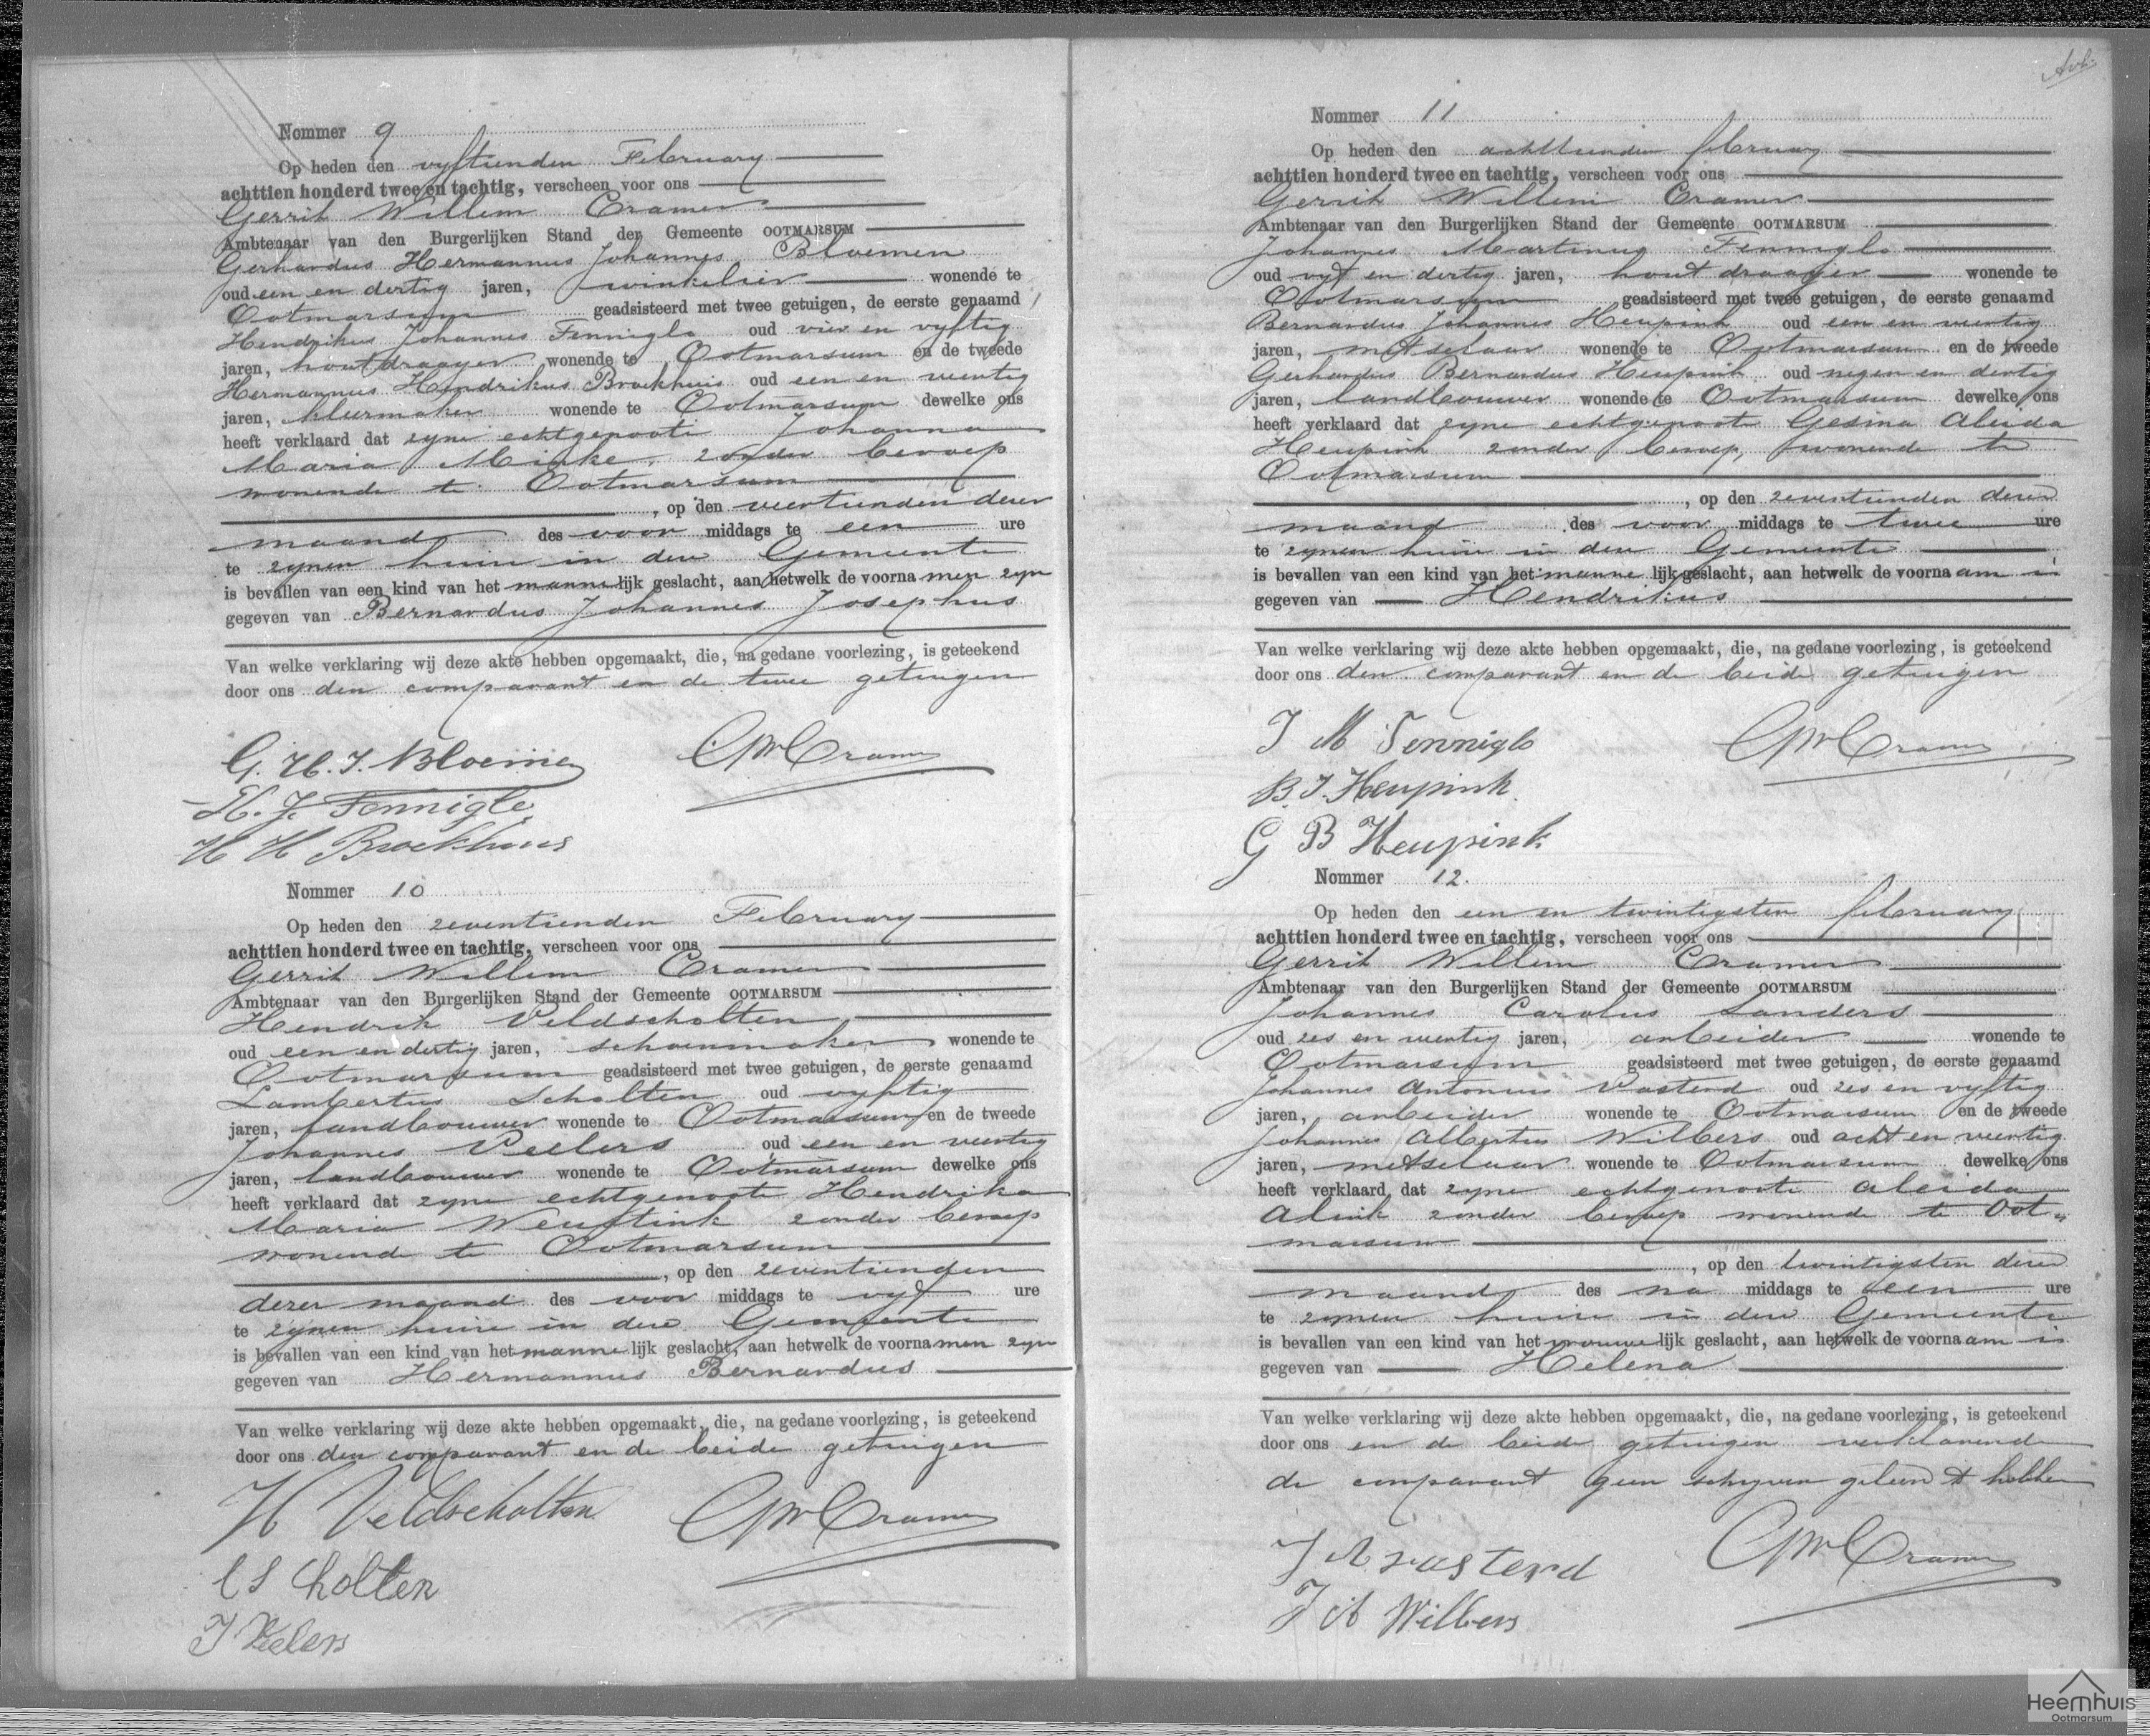 Nommer 9
Op heden den vyftienden February
achttien honderd twee en tachtig, verscheen voor ons
Gerrit Willem Cramer
Ambtenaar van den Burgerlijken Stand der Gemeente OOTMARSUM
Gerhardus Hermannus Johannes Bloemen
oud een en dertig jaren, winkelier wonende te
Ootmarsum geadsisteerd met twee getuigen, de eerste genaamd
Hendrikus Johannes Fenniglo oud vier en vyftig
jaren, houtdraayer wonende te Ootmarsum en de tweede
Hermannus Hendrikus Broekhuis oud een en veertig
jaren, kleermaker wonende te Ootmarsum dewelke ons
heeft verklaard dat zyne echtgenoote Johanna
Maria Minke, zonder beroep
wonende te Ootmarsum
, op den veertienden dezer
maand des voor middags te een ure
te zynen huize in deze Gemeente
is bevallen van een kind van het mannelijk geslacht, aan hetwelk de voornamen zyn
gegeven van Bernardus Johannes Josephus
Van welke verklaring wij deze akte hebben opgemaakt, die, na gedane voorlezing, is geteekend
door ons den comparant en de twee getuigen
G. H. J. Bloemen GWCramer
H. J. Fenniglo
H H Broekhuis
Nommer 10
Op heden den zeventienden February
achttien honderd twee en tachtig, verscheen voor ons
Gerrit Willem Cramer
Ambtenaar van den Burgerlijken Stand der Gemeente OOTMARSUM
Hendrik Veldscholten
oud een en dertig jaren, schoenmaker wonende te
Ootmarsum geadsisteerd met twee getuigen, de eerste genaamd
Lambertus Scholten oud vyftig
jaren, landbouwer wonende te Ootmarsum en de tweede
Johannes Veelers oud een en veertig
jaren, landbouwer wonende te Ootmarsum dewelke ons
heeft verklaard dat zyne echtgenoote Hendrika
Maria Weustink zonder beroep
wonende te Ootmarsum
, op den zeventienden
dezer maand des voor middags te vyf ure
te zynen huize in deze Gemeente
is bevallen van een kind van het mannelijk geslacht, aan hetwelk de voornamen zyn
gegeven van Hermannus Bernardus
Van welke verklaring wij deze akte hebben opgemaakt, die, na gedane voorlezing, is geteekend
door ons den comparant en de beide getuigen
H Veldscholten GWCramer
L Scholten
J Veelers
Nommer 11
Op heden den achttienden february
achttien honderd twee en tachtig, verscheen voor ons
Gerrit Willem Cramer
Ambtenaar van den Burgerlijken Stand der Gemeente OOTMARSUM
Johannes Martinus Fenniglo
oud vyf en dertig jaren, hout draayer wonende te
Ootmarsum geadsisteerd met twee getuigen, de eerste genaamd
Bernardus Johannes Heupink oud een en veertig
jaren, metselaar wonende te Ootmarsum en de tweede
Gerhardus Bernardus Heupink oud negen en dertig
jaren, landbouwer wonende te Ootmarsum dewelke ons
heeft verklaard dat zyne echtgenoote Gesina Aleida
Heupink zonder beroep, wonende te
Ootmarsum
, op den zeventienden dezer
maand des voor middags te twee ure
te zynen huize in deze Gemeente
is bevallen van een kind van het mannelijk geslacht, aan hetwelk de voornaam is
gegeven van Hendrikus
Van welke verklaring wij deze akte hebben opgemaakt, die, na gedane voorlezing, is geteekend
door ons den comparant en de beide getuigen
J M Fenniglo GWCramer
B. J. Heupink
G B Heupink
Nommer 12.
Op heden den een en twintigsten february
achttien honderd twee en tachtig, verscheen voor ons
Gerrit Willem Cramer
Ambtenaar van den Burgerlijken Stand der Gemeente OOTMARSUM
Johannes Carolus Sanders
oud zes en veertig jaren, arbeider wonende te
Ootmarsum geadsisteerd met twee getuigen, de eerste genaamd
Johannes Antonius Vastend oud zes en vyftig
jaren, arbeider wonende te Ootmarsum en de tweede
Johannes Albertus Wilbers oud acht en veertig
jaren, metselaar wonende te Ootmarsum dewelke ons
heeft verklaard dat zyne echtgenoote Aleida
Alink zonder beroep wonende te Oot„
marsum
, op den twintigsten dezer
maand des na middags te een ure
te zynen huize in deze Gemeente
is bevallen van een kind van het vrouwelijk geslacht, aan hetwelk de voornaam is
gegeven van Helena
Van welke verklaring wij deze akte hebben opgemaakt, die, na gedane voorlezing, is geteekend
door ons en de beide getuigen verklarende
de comparant geen schryven geleerd te hebben
J A Vastend GWCramer
J A Wilbers
Heemhuis
Ootmarsum